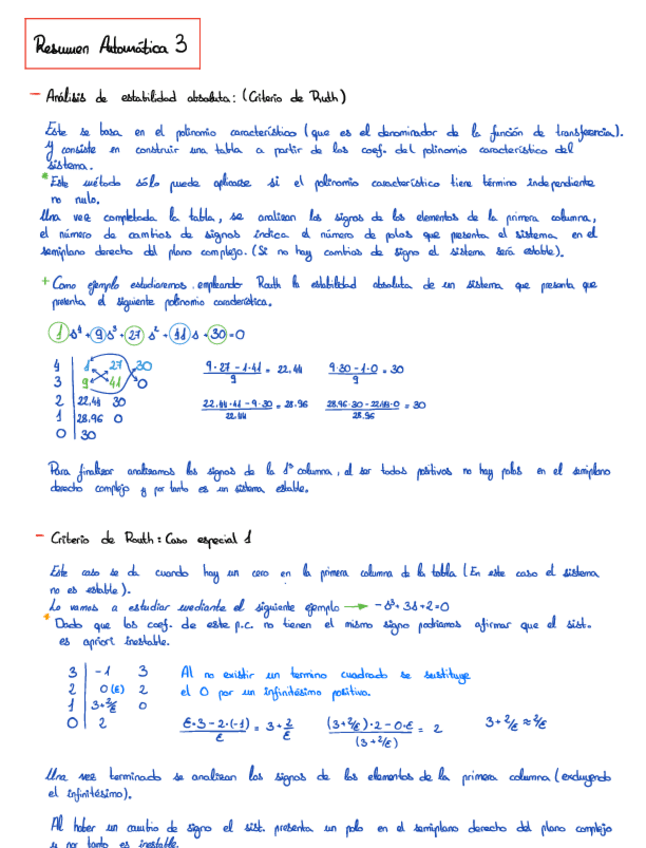 Resumen Automática 3
- Análisis de estabilidad absoluta: (Criterio de Ruth)
Este se basa en el polinomio característico (que es el denominador de la función de transferencia).
y consiste en construir una tabla a partir de los coef. del polinomio característico del
sistema.
* Este método sólo puede aplicarse si el polinomio característico tiene término independiente
no nulo.
Una vez completada la tabla, se analizan los signos de los elementos de la primera columna,
el número de cambios de signos indica el número de polos que presenta el sistema en el
semiplano derecho del plano complejo. (Si no hay cambios de signo el sistema será estable).
+ Como ejemplo estudiaremos, empleando Routh la estabilidad absoluta de un sistema que presenta que
presenta el siguiente polinomio característico.
1 s⁴ + 9 s³ + 27 s² + 41 s + 30 = 0
4 | 1 27 30
3 | 9 41 0
2 | 22.44 30
1 | 28.96 0
0 | 30
(9·27 - 1·41)/9 = 22.44 (9·30 - 1·0)/9 = 30
(22.44·41 - 9·30)/22.44 = 28.96 (28.96·30 - 22.44·0)/28.96 = 30
Para finalizar analizamos los signos de la 1ª columna, al ser todos positivos no hay polos en el semiplano
derecho complejo y por tanto es un sistema estable.
- Criterio de Routh: Caso especial 1
Este caso se da cuando hay un cero en la primera columna de la tabla (En este caso el sistema
no es estable).
Lo vamos a estudiar mediante el siguiente ejemplo → -s³+3s+2=0
* Dado que los coef. de este p.c. no tienen el mismo signo podríamos afirmar que el sist.
es apriori inestable.
3 | -1 3
2 | 0(ε) 2
1 | 3+2/ε 0
0 | 2
Al no existir un termino cuadrado se sustituye
el 0 por un infinitésimo positivo.
(ε·3 - 2·(-1))/ε = 3+2/ε ((3+2/ε)·2 - 0·ε)/(3+2/ε) = 2 3+2/ε ≈ 2/ε
Una vez terminado se analizan los signos de los elementos de la primera columna (excluyendo
el infinitésimo).
Al haber un cambio de signo el sist. presenta un polo en el semiplano derecho del plano complejo
y por tanto es inestable.